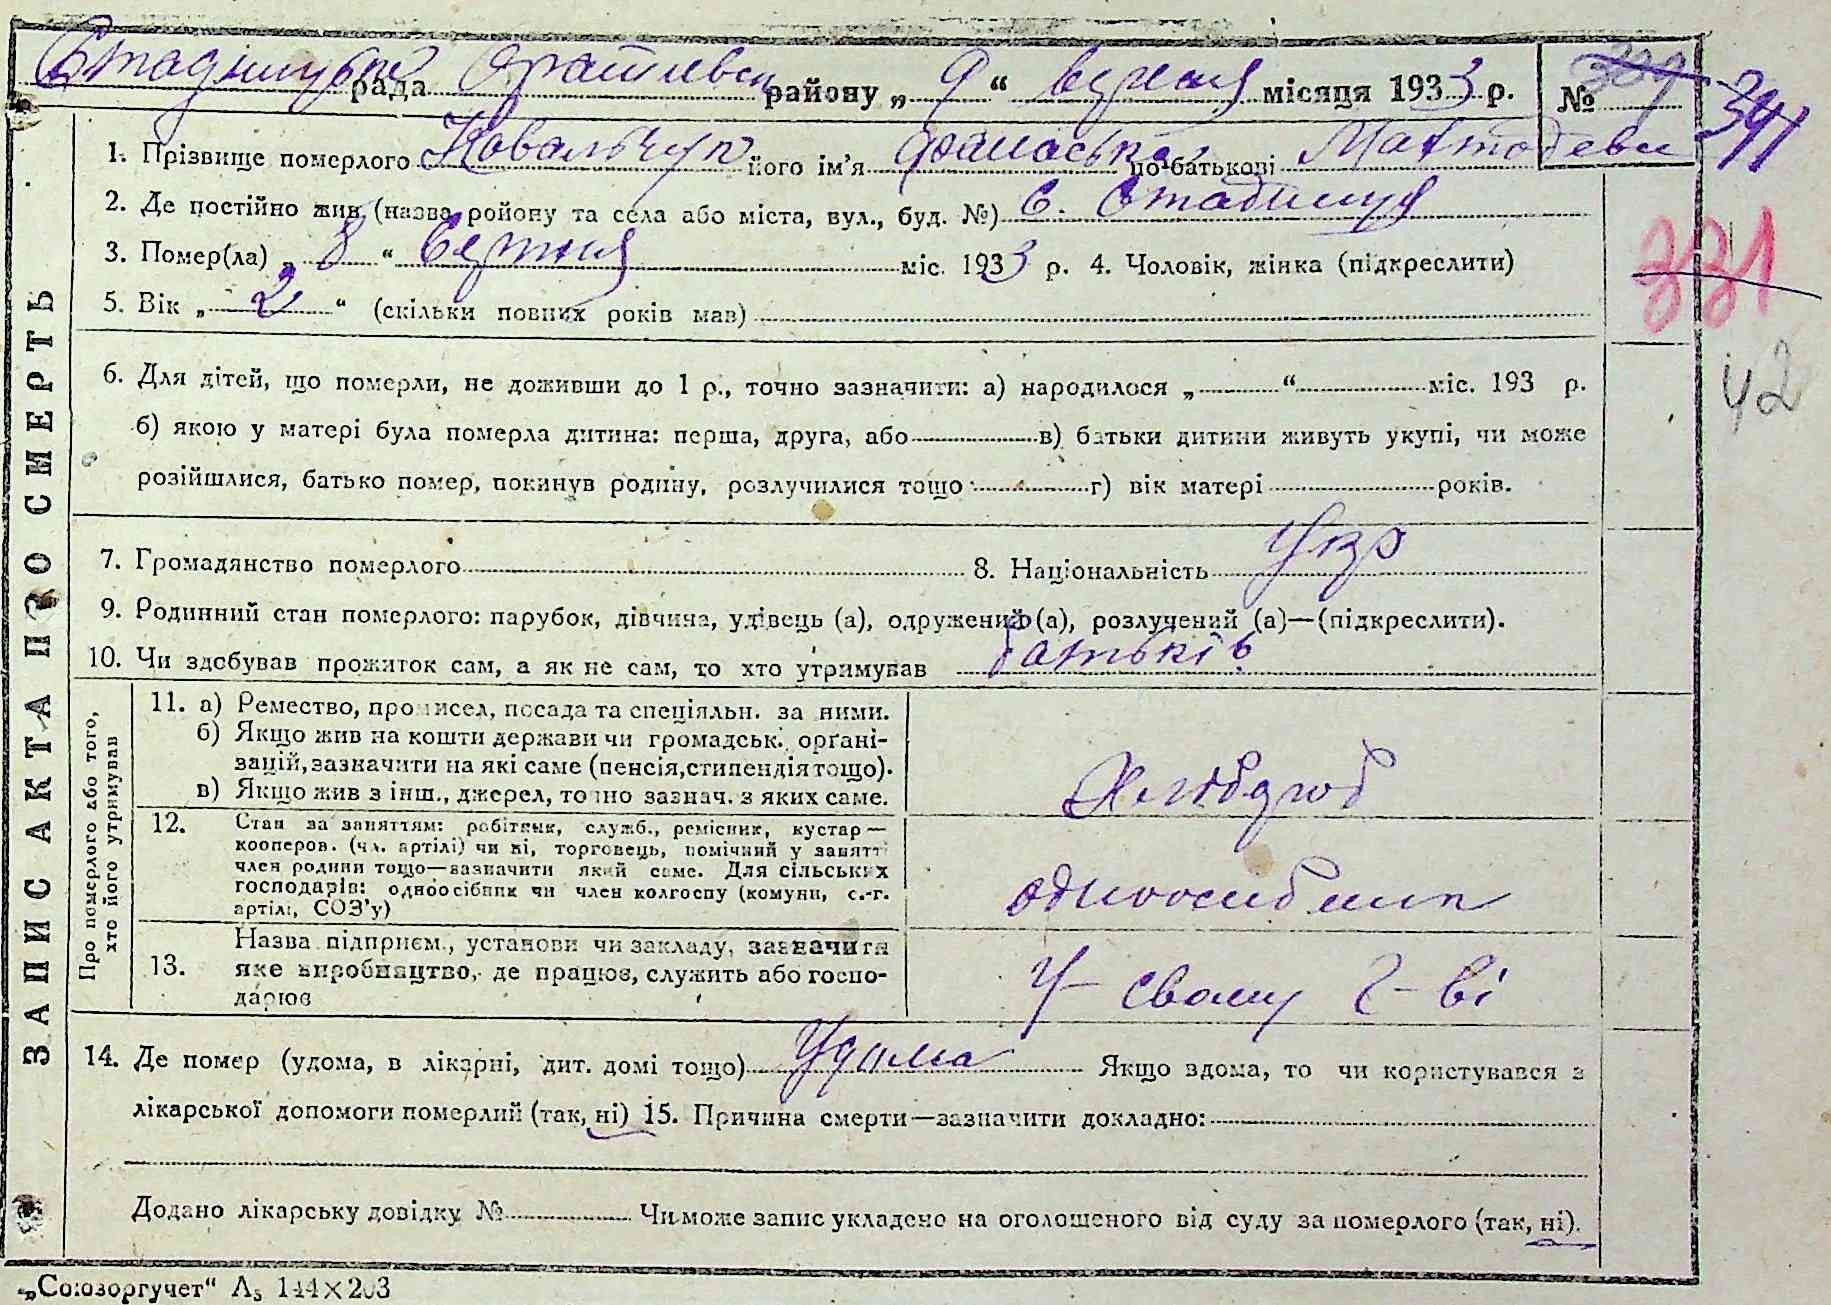 Стадницька рада Оратівськ району „ 9 “ вересня місяця 1933 р. № 389 341
1. Прізвище померлого Ковальчук його ім'я Фанаська по-батькові Мактодеви
2. Де постійно жив (назва ройону та села або міста, вул., буд. №) с. Стадниця
3. Помер(ла) „ 8 “ вересня міс. 1933 р. 4. Чоловік, жінка (підкреслити)
331
5. Вік „ 2 “ (скільки повних років мав)
42
6. Для дітей, що померли, не доживши до 1 р., точно зазначити: а) народилося „ “ міс. 193 р.
б) якою у матері була померла дитина: перша, друга, або в) батьки дитини живуть укупі, чи може
розійшлися, батько помер, покинув родину, розлучилися тощо г) вік матері років.
7. Громадянство померлого 8. Національність Укр
9. Родинний стан померлого: парубок, дівчина, удівець (а), одружений (а), розлучений (а)—(підкреслити).
10. Чи здобував прожиток сам, а як не сам, то хто утримував батьків
ЗАПИС АКТА ПРО СМЕРТЬ
Про померлого або того,
хто його утримував
11. а) Ремество, промисел, посада та спеціяльн. за ними.
б) Якщо жив на кошти держави чи громадськ. орґані-
зацій, зазначити на які саме (пенсія, стипендія тощо).
в) Якщо жив з інш., джерел, точно зазнач. з яких саме.
Хлібороб
12. Стан за заняттям: робітник, служб., ремісник, кустар—
кооперов. (чл. артілі) чи ні, торговець, помічний у занятті
член родини тощо—зазначити який саме. Для сільських
господарів: одноосібник чи член колгоспу (комуни, с.-г.
артілі, СОЗ'у)
одноосибник
13. Назва підприєм., установи чи закладу, зазначити
яке виробництво, де працює, служить або госпо-
дарює
У свому г-ві
14. Де помер (удома, в лікарні, дит. домі тощо) Удома Якщо вдома, то чи користувався з
лікарської допомоги померлий (так, ні) 15. Причина смерти—зазначити докладно:
Додано лікарську довідку № Чи може запис укладено на оголошеного від суду за померлого (так, ні).
„Союзоргучет“ А₅ 144×203